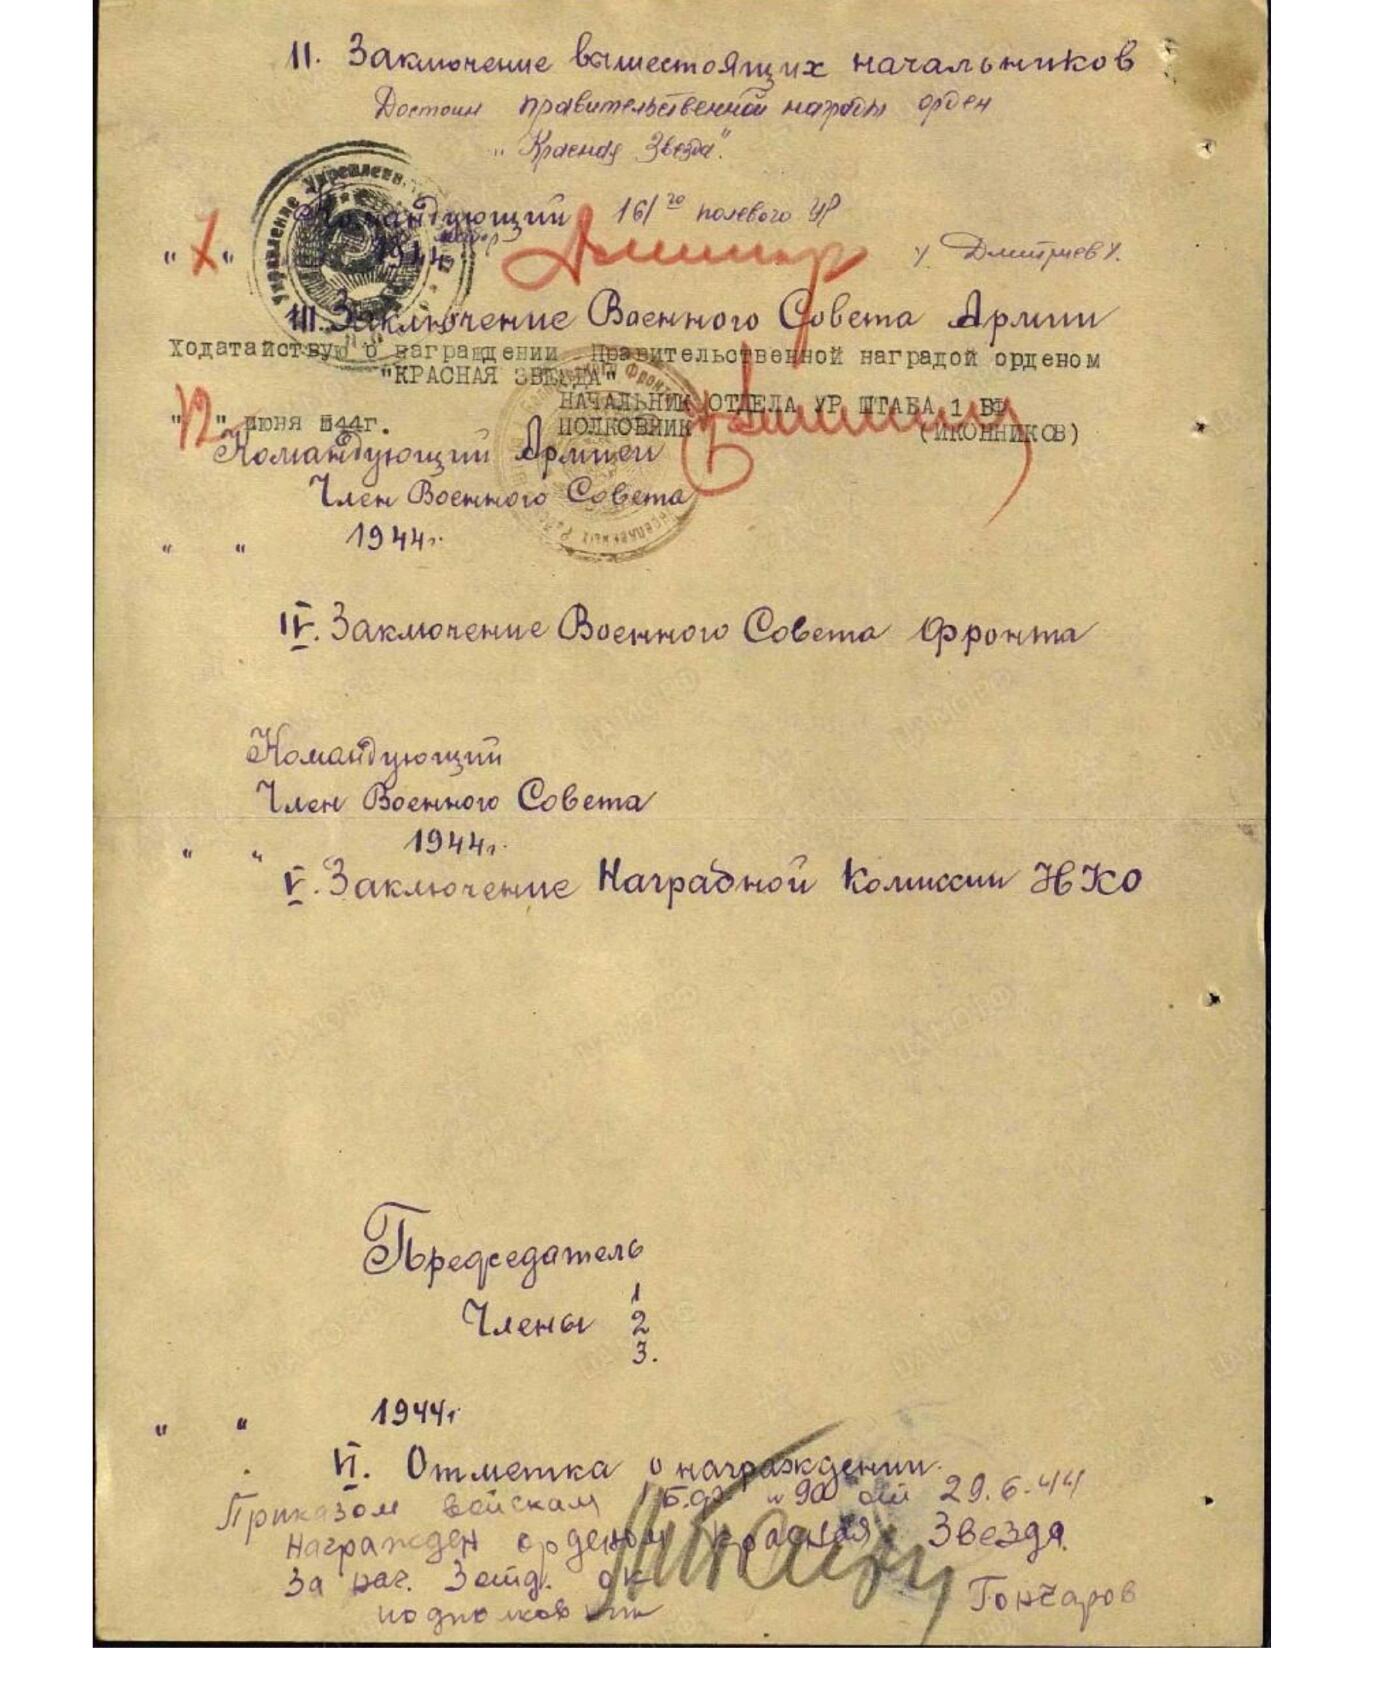 II. Заключение вышестоящих начальников
Достоин правительственной награды орден
„Красная Звезда".
Командующий 161го полевого УР
" " 1944 / Дмитриев /.
III. Заключение Военного Совета Армии
Ходатайствую о награждении Правительственной наградой орденом
"КРАСНАЯ ЗВЕЗДА"
НАЧАЛЬНИК ОТДЕЛА УР ШТАБА 1 БФ
"12" июня 1944г. ПОЛКОВНИК (ИКОННИКОВ)
Командующий Армией
Член Военного Совета
" " 1944г.
IV. Заключение Военного Совета Фронта
Командующий
Член Военного Совета
" " 1944г.
V. Заключение Наградной Комиссии НКО
Председатель
Члены 1
2
3.
" " 1944г
VI. Отметка о награждении.
Приказом войскам 1 Б.Ф. № 90 от 29.6.44
Награжден орденом Красная Звезда.
За нач. 3 отд. ок
подполковник Гончаров